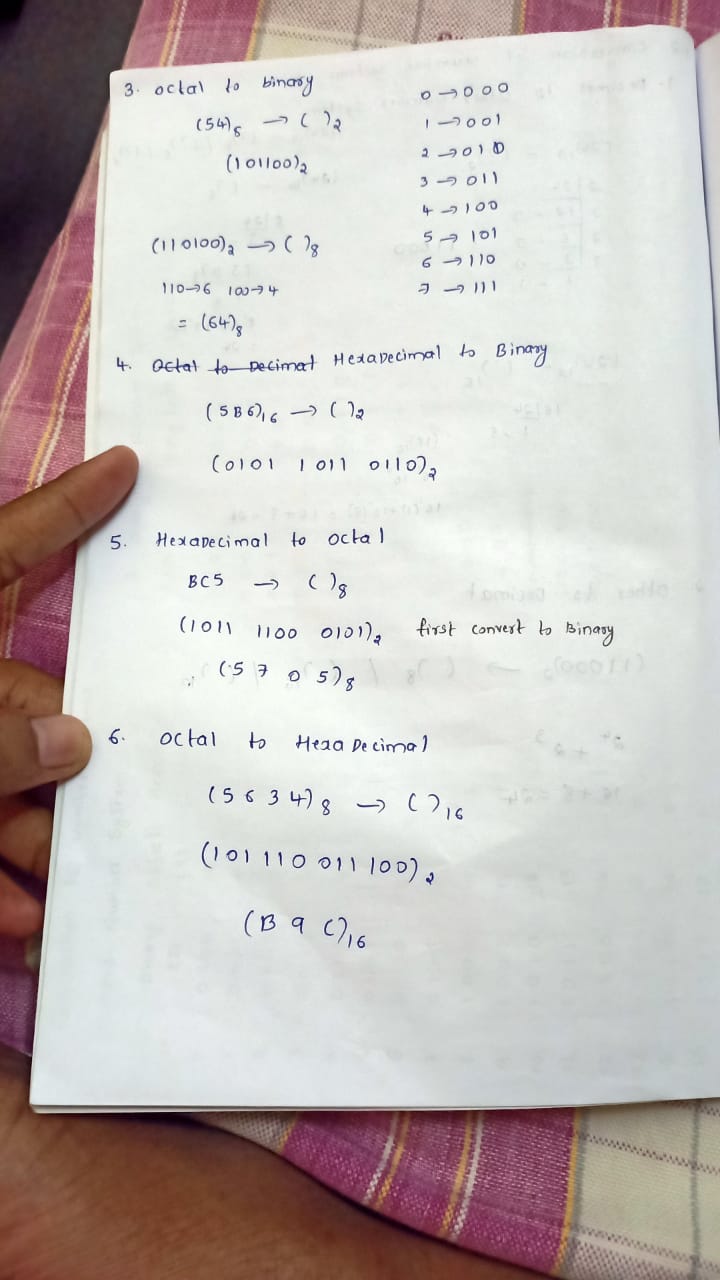 3. octal to binary
(54)₈ → ( )₂
(101100)₂
0 → 000
1 → 001
2 → 010
3 → 011
4 → 100
5 → 101
6 → 110
7 → 111
(110100)₂ → ( )₈
110→6 100→4
= (64)₈
4. Octal to Decimal HexaDecimal to Binary
(5B6)₁₆ → ( )₂
(0101 1011 0110)₂
5. HexaDecimal to octal
BC5 → ( )₈
(1011 1100 0101)₂ first convert to Binary
(5 7 0 5)₈
6. octal to HexaDecimal
(5634)₈ → ( )₁₆
(101 110 011 100)₂
(B 9 C)₁₆